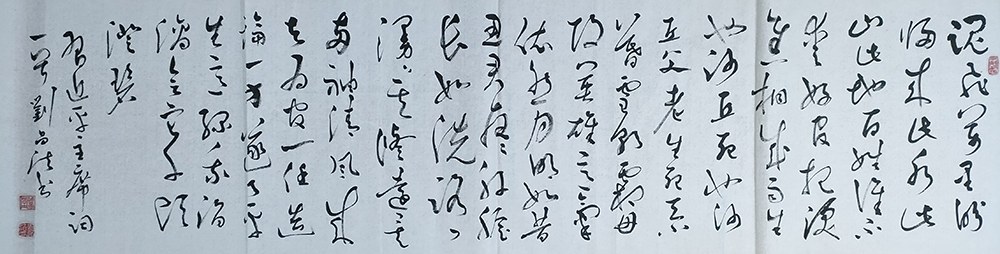 魂飛萬里盼
歸来此水此
山此地百姓谁不
爱好官把泪
焦桐成雨生
也沙丘死也沙
丘父老生死系
暮雪朝霜毋
改英雄意氣
依然月明如昔
思君夜夜肝胆
长如洗路
漫漫其修遠矣
两袖清风来
去为官一任造
福一方遂了平
生意绿我涓
滴会它千顷
澄碧
习近平主席词
一首 劉